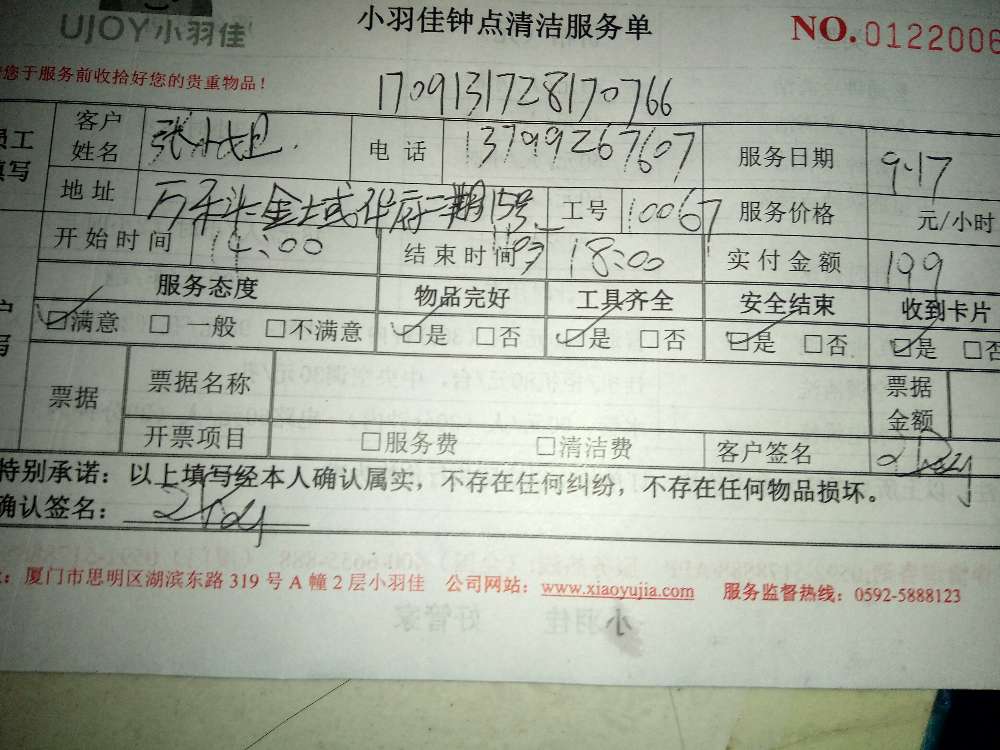 UJOY小羽佳
小羽佳钟点清洁服务单
NO.0122006
您于服务前收拾好您的贵重物品！
170913172817 0766
员工填写
客户姓名 电话 13799267607 服务日期 9.17
地址 金域华府二期15号 工号 10067 服务价格 元/小时
开始时间 14:00 结束时间 18:00 实付金额 199
服务态度 物品完好 工具齐全 安全结束 收到卡片
☑满意 □一般 □不满意 ☑是 □否 ☑是 □否 ☑是 □否 ☑是 □否
票据 票据名称 票据金额
开票项目 □服务费 □清洁费 客户签名
特别承诺：以上填写经本人确认属实，不存在任何纠纷，不存在任何物品损坏。
确认签名：
厦门市思明区湖滨东路 319 号 A 幢 2 层小羽佳 公司网站：www.xiaoyujia.com 服务监督热线：0592-5888123